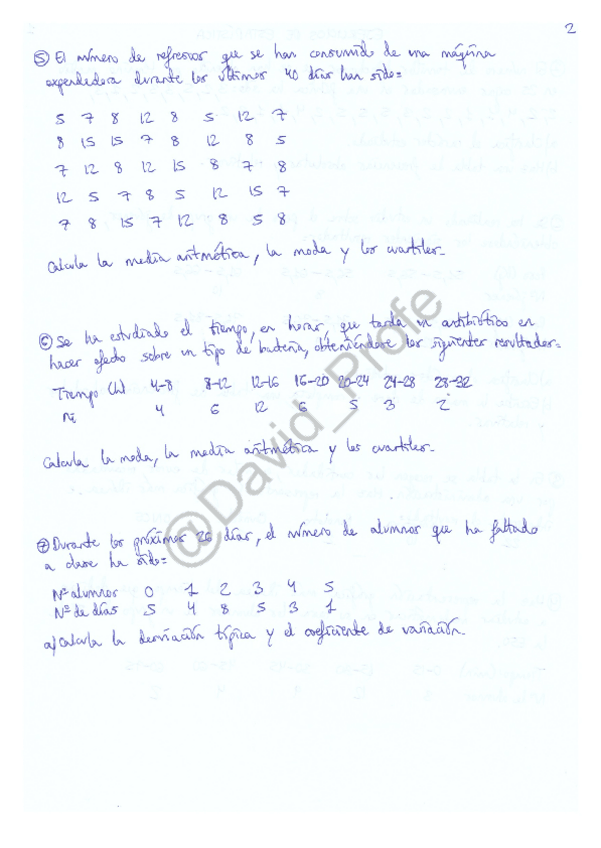 2
⑤ El número de refrescos que se han consumido de una máquina
expendedora durante los últimos 40 días han sido:
5 7 8 12 8 5 12 7
8 15 15 7 8 12 8 5
7 12 8 12 15 8 7 8
12 5 7 8 5 12 15 7
7 8 15 7 12 8 5 8
Calcula la media aritmética, la moda y los cuartiles.
⑥ Se ha estudiado el tiempo, en horas, que tarda un antibiótico en
hacer efecto sobre un tipo de bacteria, obteniéndose los siguientes resultados:
Tiempo (h) 4-8 8-12 12-16 16-20 20-24 24-28 28-32
ni 4 6 12 6 5 3 2
Calcula la moda, la media aritmética y los cuartiles.
⑦ Durante los próximos 26 días, el número de alumnos que ha faltado
a clase ha sido:
Nº alumnos 0 1 2 3 4 5
Nº de días 5 4 8 5 3 1
a) Calcula la desviación típica y el coeficiente de variación.
@David_Profe